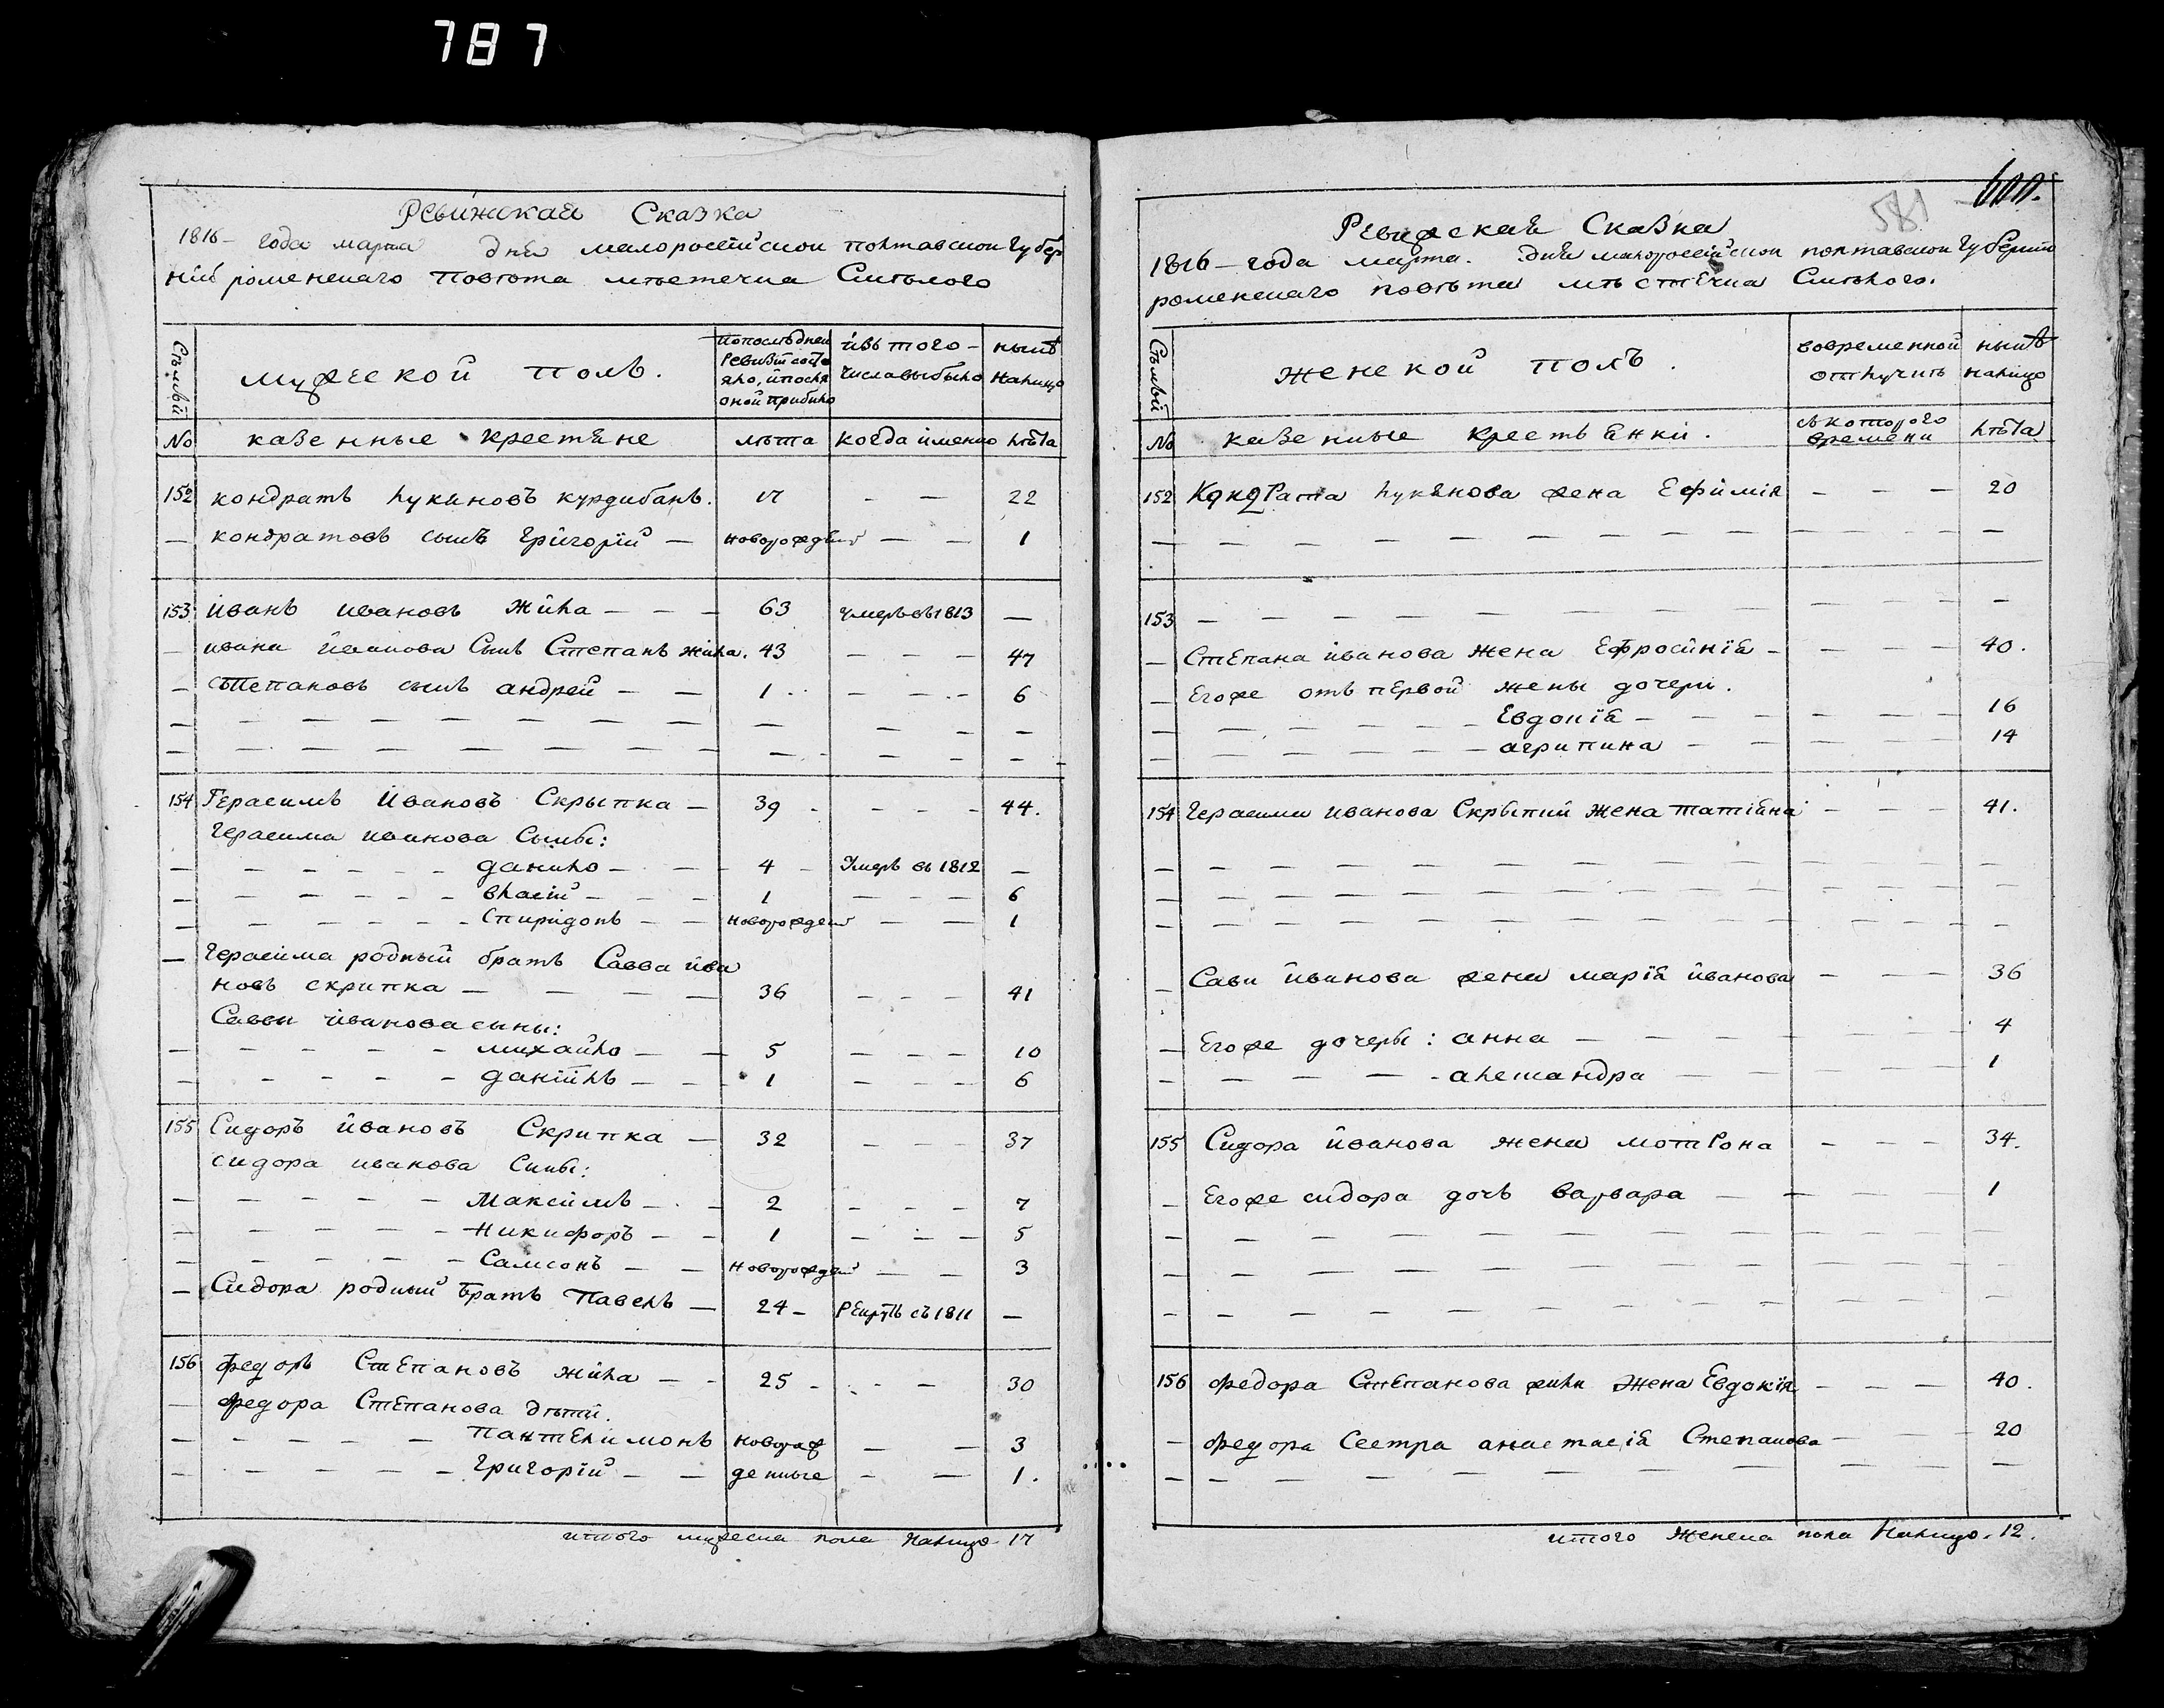 787
Ревижская Сказка
1816 - года марта дня малороссийской полтавской губер
нии роменскаго повѣта мѣстечка Смѣлого
Семьи
мужеской полъ.
по последней ревизіи состояло, и после оной прибыло
изъ того числа выбыло
нынѣ налицо
No
казенные крестяне
лѣта
когда именно
лѣта
152 кондратъ лукяновъ курдибанъ. 17 - — 22
— кондратовъ сынъ григорій — новорожденъ — — 1
153 иванъ ивановъ жила — — — 63 умеръ въ 1813 —
— ивана иванова сынъ Степанъ жила. 43 — — — 47
— степановъ сынъ андрей — — 1 — — — 6
154 Герасимъ ивановъ Скрыпка — 39 - - - - 44.
герасима иванова сыны:
— — — — — данило — — 4 - Умеръ въ 1812 —
— — — — — власій — — — 1 — — — 6
— — — — — спиридонъ — — новорожденъ — — 1
— герасима родный братъ Савва ива
новъ скрипка — — — — 36 — — — 41
Саввы иванова сыны:
— — — — — михайло — — 5 — — — 10
— — — — — даніилъ — — 1 — — 6
155 Сидоръ ивановъ Скрипка — 32 — — — 37
сидора иванова сыны:
— — — — — Максимъ — — 2 — — — 7
— — — — — Никифоръ — — 1 — — — 5
— — — — — Самсонъ — — новорожден — — 3
— Сидора родный братъ Павелъ — 24 — Рекрутъ съ 1811 —
156 федоръ Степановъ жила — - 25 - - - — 30
— федора Степанова дѣти.
— — — — — пантелимонъ новорож — — 3
— — — — — григорій — — денные — — 1.
итого мужеска пола Налицо 17
600.
581
Ревижская Сказка
1816 — года марта. дня малороссійской полтавской губерніи
роменскаго повѣта мѣстечка Смѣлого.
Семьи
женской полъ.
вовременной отлучкѣ
нынѣ налицо
No
казенные крестьянки.
съ которого времени
лѣта
152 Кондрата лукянова жена Ефимія — — — 20
— — — — — — — — — — — — — —
153 — — — — — — — — — — — — —
— Степана иванова жена Ефросинія — — — — 40.
— Егоже отъ первой жены дочери.
— — — — — — Евдокія — — — — — 16
— — — — — — агрипина — — — — — 14
154 герасима иванова Скрыпки жена татіяна — — — 41.
— Савы иванова жена марія иванова — — — 36
— Егоже дочеры: анна — — — — — 4
— — — — — александра — — — — 1
155 Сидора иванова жена мотрона — — — 34.
— Егоже сидора дочь варвара — — — — 1
156 федора Степанова жилы жена Евдокія — — — 40.
— федора Сестра анастасія Степанова — — — 20
— — — — — — — — — — — —
итого Женска пола Налицо. 12.